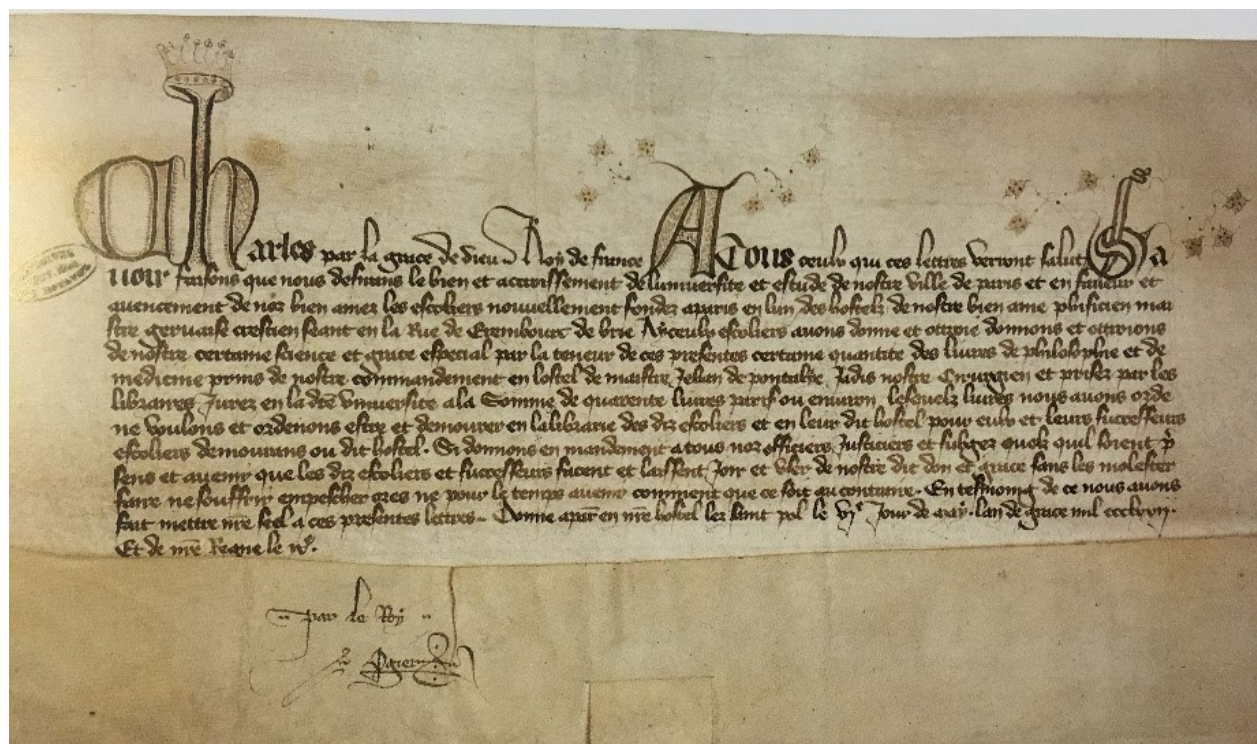 Charles par la grace de dieu Roy de france A Tous ceulx qui ces lettres verront salut Sa
uoir faisons que nous desirans le bien et accroissement de luniuersite et estude de nostre ville de paris et en faueur et
auencement de noz bien amez les escoliers nouuellement fondez aparis en lun des hostelz de nostre bien ame phisicien mai
stre geruaise crestien seant en la Rue de Erembourc de brie Ayceulx escoliers auons donne et ottroie donnons et ottroions
de nostre certaine science et grace especial par la teneur de ces presentes certaine quantite des liures de philosophie et de
medicine prins de nostre commandement en lostel de maistre Jehan de Jadis nostre Cirurgien et prisez par les
libraires Jurez en la dce vniuersite a la Somme de quarente liures paris ou enuiron lesquelz liures nous auons orde
ne voulons et ordenons estre et demourer en la librarie des diz escoliers et en leur dit hostel pour eulx et leurs successeurs
escoliers demourans ou dit hostel. Si donnons en mandement a tous noz officiers Justiciers et subgez quelz quil soient p̄
sens et auenir que les diz escoliers et successeurs facent et laissent Joir et vser de nostre dit don et grace sans les molester
faire ne souffrir empescher ores ne pour le temps auenir comment que ce soit au contraire. En tesmoing de ce nous auons
fait mettre nre seel a ces presentes lettres. Donne a par en nre hostel lez saint pol le vje Jour de
Et de nre Regne le
par le Roy